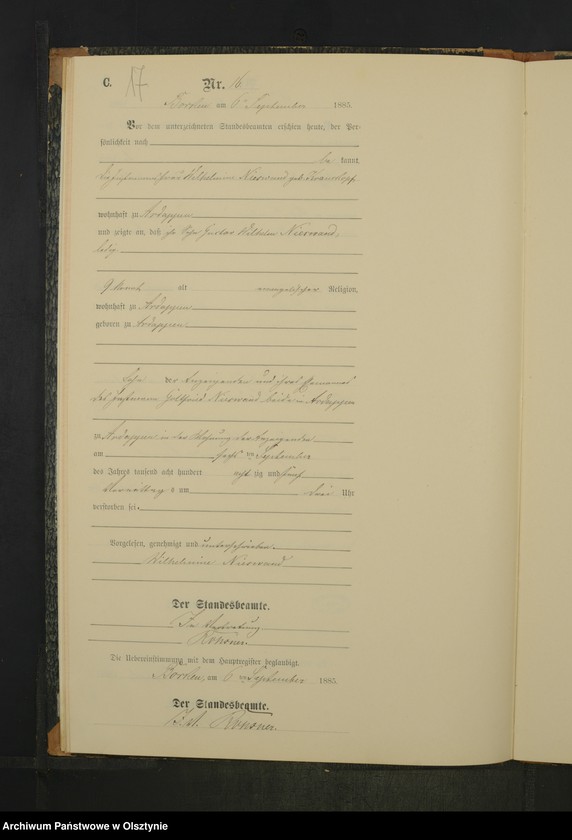 C. 17 Nr. 16
Borken am 6ten September 1885.
Vor dem unterzeichneten Standesbeamten erschien heute, der Per-
sönlichkeit nach
be kannt,
Wilhelmine Nieswand geb.
wohnhaft zu Ardappen
und zeigte an, daß ihr Sohn Gustav Wilhelm Nieswand,
ledig
9 Monat alt evangelischer Religion,
wohnhaft zu Ardappen
geboren zu Ardappen
Sohn der Anzeigenden und ihres Ehemannes
des Gottfried Nieswand beide in Ardappen
zu Ardappen in der Wohnung der Anzeigenden
am sechsten September
des Jahres tausend acht hundert acht zig und fünf
Vormittags um drei Uhr
verstorben sei.
Vorgelesen, genehmigt und unterschrieben
Wilhelmine Nieswand
Der Standesbeamte.
In Vertretung
Die Uebereinstimmung mit dem Hauptregister beglaubigt
Borken, am 6ten September 1885.
Der Standesbeamte.
Archiwum Państwowe w Olsztynie